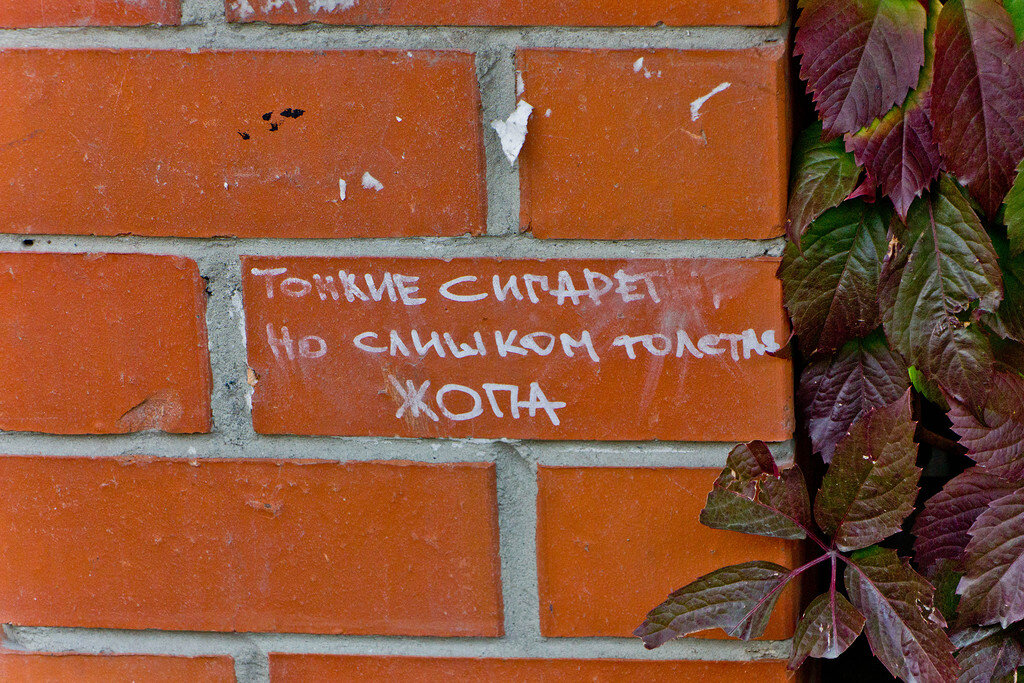 ТОНКИЕ СИГАРЕТ
НО СЛИШКОМ ТОЛСТАЯ
ЖОПА